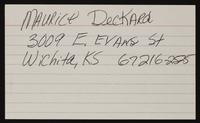 MAURICE DECKARD
3009 E. EVANS St
Wichita, KS 67216-2525